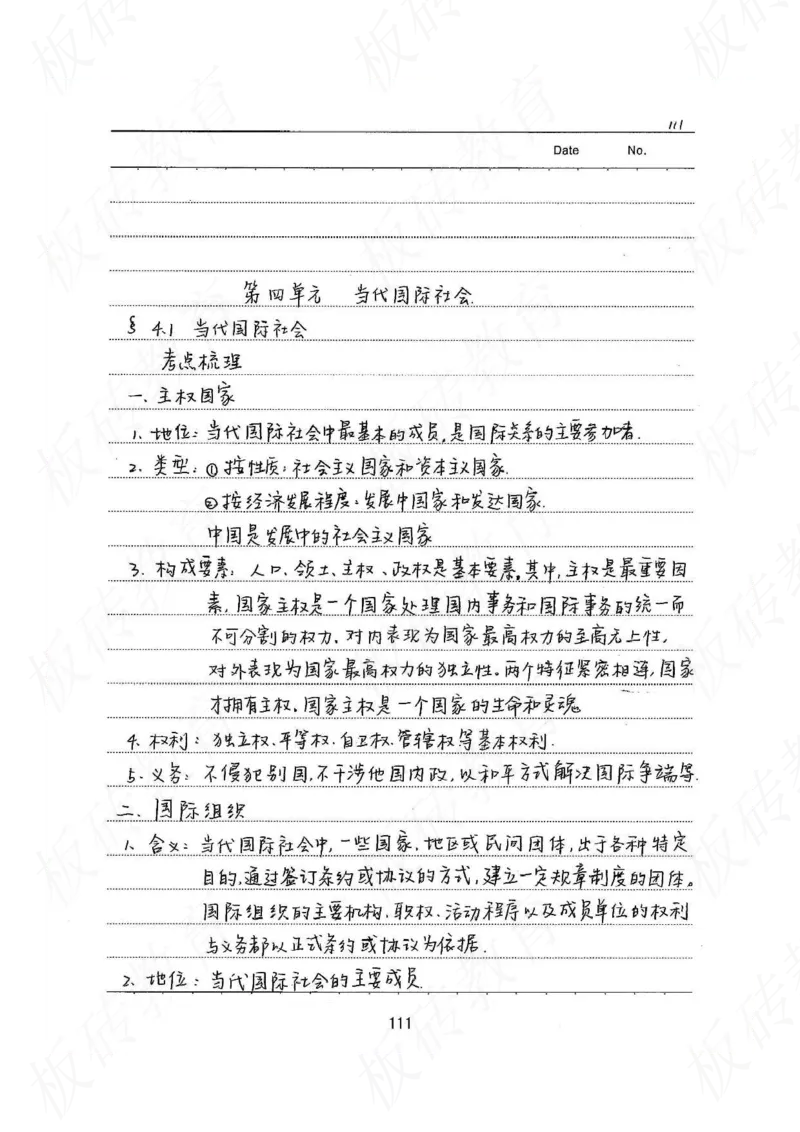 111
Date No.
第四单元 当代国际社会.
§ 4.1 当代国际社会
考点梳理
一、主权国家
1、地位：当代国际社会中最基本的成员,是国际关系的主要参加者.
2、类型：①按性质：社会主义国家和资本主义国家.
②按经济发展程度：发展中国家和发达国家.
中国是发展中的社会主义国家
3、构成要素：人口、领土、主权、政权是基本要素。其中,主权是最重要因
素,国家主权是一个国家处理国内事务和国际事务的统一而
不可分割的权力，对内表现为国家最高权力的至高无上性，
对外表现为国家最高权力的独立性。两个特征紧密相连,国家
才拥有主权。国家主权是一个国家的生命和灵魂
4、权利：独立权、平等权、自卫权、管辖权等基本权利.
5、义务：不侵犯别国,不干涉他国内政,以和平方式解决国际争端等.
二、国际组织
1、含义：当代国际社会中,一些国家、地区或民间团体,出于各种特定
目的,通过签订条约或协议的方式,建立一定规章制度的团体。
国际组织的主要机构、职权、活动程序以及成员单位的权利
与义务都以正式条约或协议为依据.
2、地位：当代国际社会的主要成员.
111
板砖教育